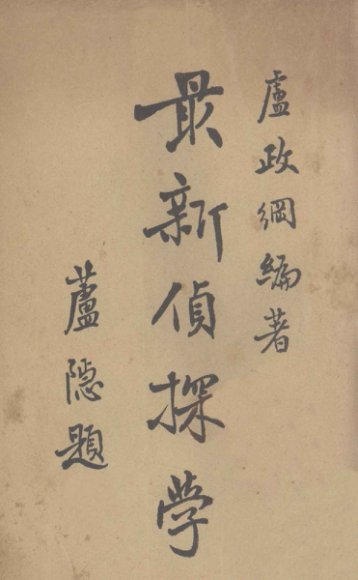 盧政綱編著
最新偵探学
蘆隠題